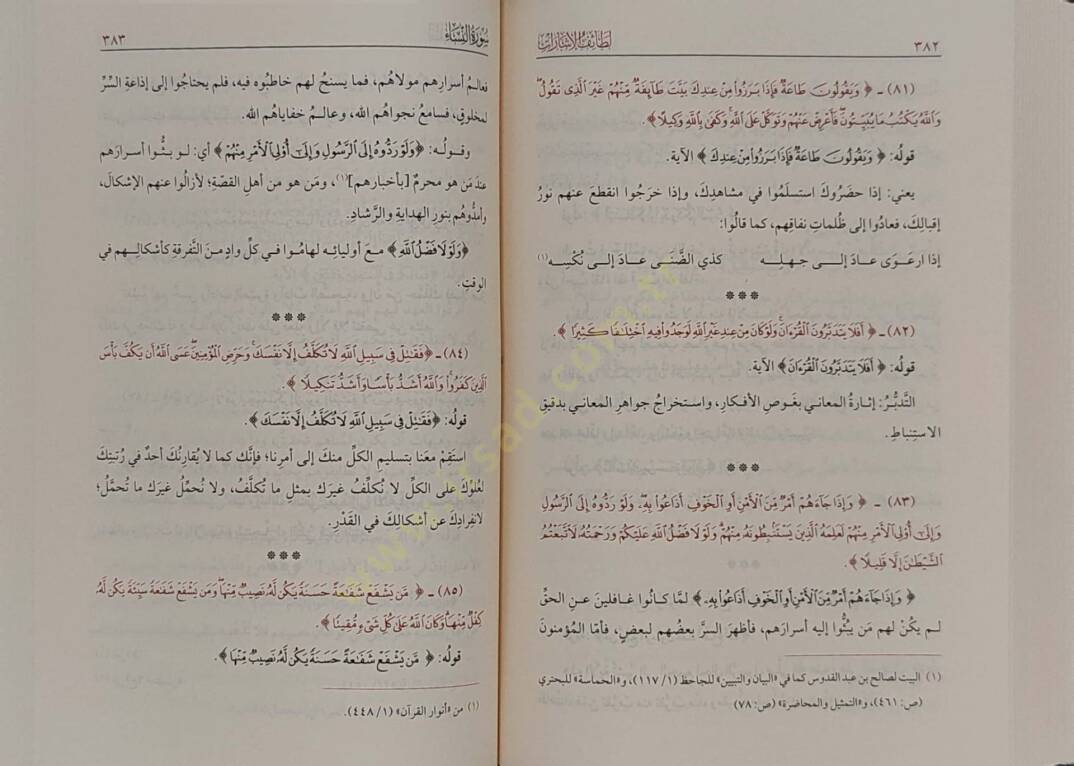 ٣٨٢ لطائف الإشارات
(٨١) ـ ﴿ وَيَقُولُونَ طَاعَةٌ فَإِذَا بَرَزُوا۟ مِنْ عِندِكَ بَيَّتَ طَآئِفَةٌ مِّنْهُمْ غَيْرَ ٱلَّذِى تَقُولُ
وَٱللَّهُ يَكْتُبُ مَا يُبَيِّتُونَ فَأَعْرِضْ عَنْهُمْ وَتَوَكَّلْ عَلَى ٱللَّهِ وَكَفَىٰ بِٱللَّهِ وَكِيلًا ﴾.
قولُه: ﴿ وَيَقُولُونَ طَاعَةٌ فَإِذَا بَرَزُوا۟ مِنْ عِندِكَ ﴾ الآية.
يعني: إذا حضَرُوكَ استسلَمُوا في مشاهدِكَ، وإذا خرَجُوا انقطعَ عنهم نورُ
إقبالِكَ، فعادُوا إلى ظُلماتِ نفاقِهم، كما قالُوا:
إذا ارعَوَى عـادَ إلـــى جـهـلِـه كذي الضَّنَـى عـادَ إلى نُكْسِـه (١)
***
(٨٢) ـ ﴿ أَفَلَا يَتَدَبَّرُونَ ٱلْقُرْءَانَ وَلَوْ كَانَ مِنْ عِندِ غَيْرِ ٱللَّهِ لَوَجَدُوا۟ فِيهِ ٱخْتِلَـٰفًا كَثِيرًا ﴾.
قولُه: ﴿ أَفَلَا يَتَدَبَّرُونَ ٱلْقُرْءَانَ ﴾ الآية.
التَّدبُّر: إثـارةُ المعانـي بغَـوصِ الأفكـارِ، واستخـراجُ جواهـرِ المعانـي بدقيقِ
الاستنباطِ.
***
(٨٣) ـ ﴿ وَإِذَا جَآءَهُمْ أَمْرٌ مِّنَ ٱلْأَمْنِ أَوِ ٱلْخَوْفِ أَذَاعُوا۟ بِهِۦ وَلَوْ رَدُّوهُ إِلَى ٱلرَّسُولِ
وَإِلَىٰٓ أُو۟لِى ٱلْأَمْرِ مِنْهُمْ لَعَلِمَهُ ٱلَّذِينَ يَسْتَنۢبِطُونَهُۥ مِنْهُمْ وَلَوْلَا فَضْلُ ٱللَّهِ عَلَيْكُمْ وَرَحْمَتُهُۥ لَٱتَّبَعْتُمُ
ٱلشَّيْطَـٰنَ إِلَّا قَلِيلًا ﴾.
﴿ وَإِذَا جَآءَهُمْ أَمْرٌ مِّنَ ٱلْأَمْنِ أَوِ ٱلْخَوْفِ أَذَاعُوا۟ بِهِۦ ﴾ لمَّا كانُـوا غافلينَ عـنِ الحقِّ
لـم يكُنْ لهم مَن يبُثُّوا إليه أسرارَهم، فأظهَرَ السرَّ بعضُهم لبعضٍ، فأمَّا المؤمنونَ
(١) البيت لصالح بن عبد القدوس كما في «البيان والتبيين» للجاحظ (١/ ١١٧)، و«الحماسة» للبحتري
(ص: ٤٦١)، و«التمثيل والمحاضرة» (ص: ٧٨)
سورة النساء ٣٨٣
فعالمُ أسرارِهم مولاهُم، فما يسنحُ لهم خاطبُوه فيه، فلم يحتاجُوا إلى إذاعةِ السِّرِّ
لمخلوقٍ، فسامعُ نجواهُم الله، وعالـمُ خفاياهُم الله.
وقـولُـه: ﴿ وَلَوْ رَدُّوهُ إِلَى ٱلرَّسُولِ وَإِلَىٰٓ أُو۟لِى ٱلْأَمْرِ مِنْهُمْ ﴾ أي: لـو بـثُّـوا أسرارَهـم
عندَ مَن هو محرمٌ [بأخبارِهم](١)، ومَن هو من أهلِ القصّةِ؛ لأزالُوا عنهم الإشكالَ،
وأمدُّوهُم بنورِ الهدايةِ والرَّشادِ.
﴿ وَلَوْلَا فَضْلُ ٱللَّهِ ﴾ مـع أوليائِـه لهامُـوا فـي كـلِّ وادٍ مـنَ التَّفرقـةِ كأشكالِـهـم في
الوقتِ.
***
(٨٤) ـ ﴿ فَقَـٰتِلْ فِى سَبِيلِ ٱللَّهِ لَا تُكَلَّفُ إِلَّا نَفْسَكَ وَحَرِّضِ ٱلْمُؤْمِنِينَ عَسَى ٱللَّهُ أَن يَكُفَّ بَأْسَ
ٱلَّذِينَ كَفَرُوا۟ وَٱللَّهُ أَشَدُّ بَأْسًا وَأَشَدُّ تَنكِيلًا ﴾.
قولُه: ﴿ فَقَـٰتِلْ فِى سَبِيلِ ٱللَّهِ لَا تُكَلَّفُ إِلَّا نَفْسَكَ ﴾.
استَقِمْ معَنا بتسليمِ الكلِّ منكَ إلى أمرِنا؛ فإنَّكَ كما لا يُقارِنُكَ أحدٌ في رُتبتِكَ
لعلُوِّكَ على الكلِّ لا نُكلِّفُ غيرَكَ بمثلِ ما تُكلَّفُ، ولا نُحمِّلُ غيرَك ما تُحمَّلُ؛
لانفرادِكَ عن أشكالِكَ في القَدْرِ.
***
(٨٥) ـ ﴿ مَّن يَشْفَعْ شَفَـٰعَةً حَسَنَةً يَكُن لَّهُۥ نَصِيبٌ مِّنْهَا وَمَن يَشْفَعْ شَفَـٰعَةً سَيِّئَةً يَكُن لَّهُۥ
كِفْلٌ مِّنْهَا وَكَانَ ٱللَّهُ عَلَىٰ كُلِّ شَىْءٍ مُّقِيتًا ﴾.
قولُه: ﴿ مَّن يَشْفَعْ شَفَـٰعَةً حَسَنَةً يَكُن لَّهُۥ نَصِيبٌ مِّنْهَا ﴾.
(١) من «أنوار القرآن» (١/ ٤٤٨).